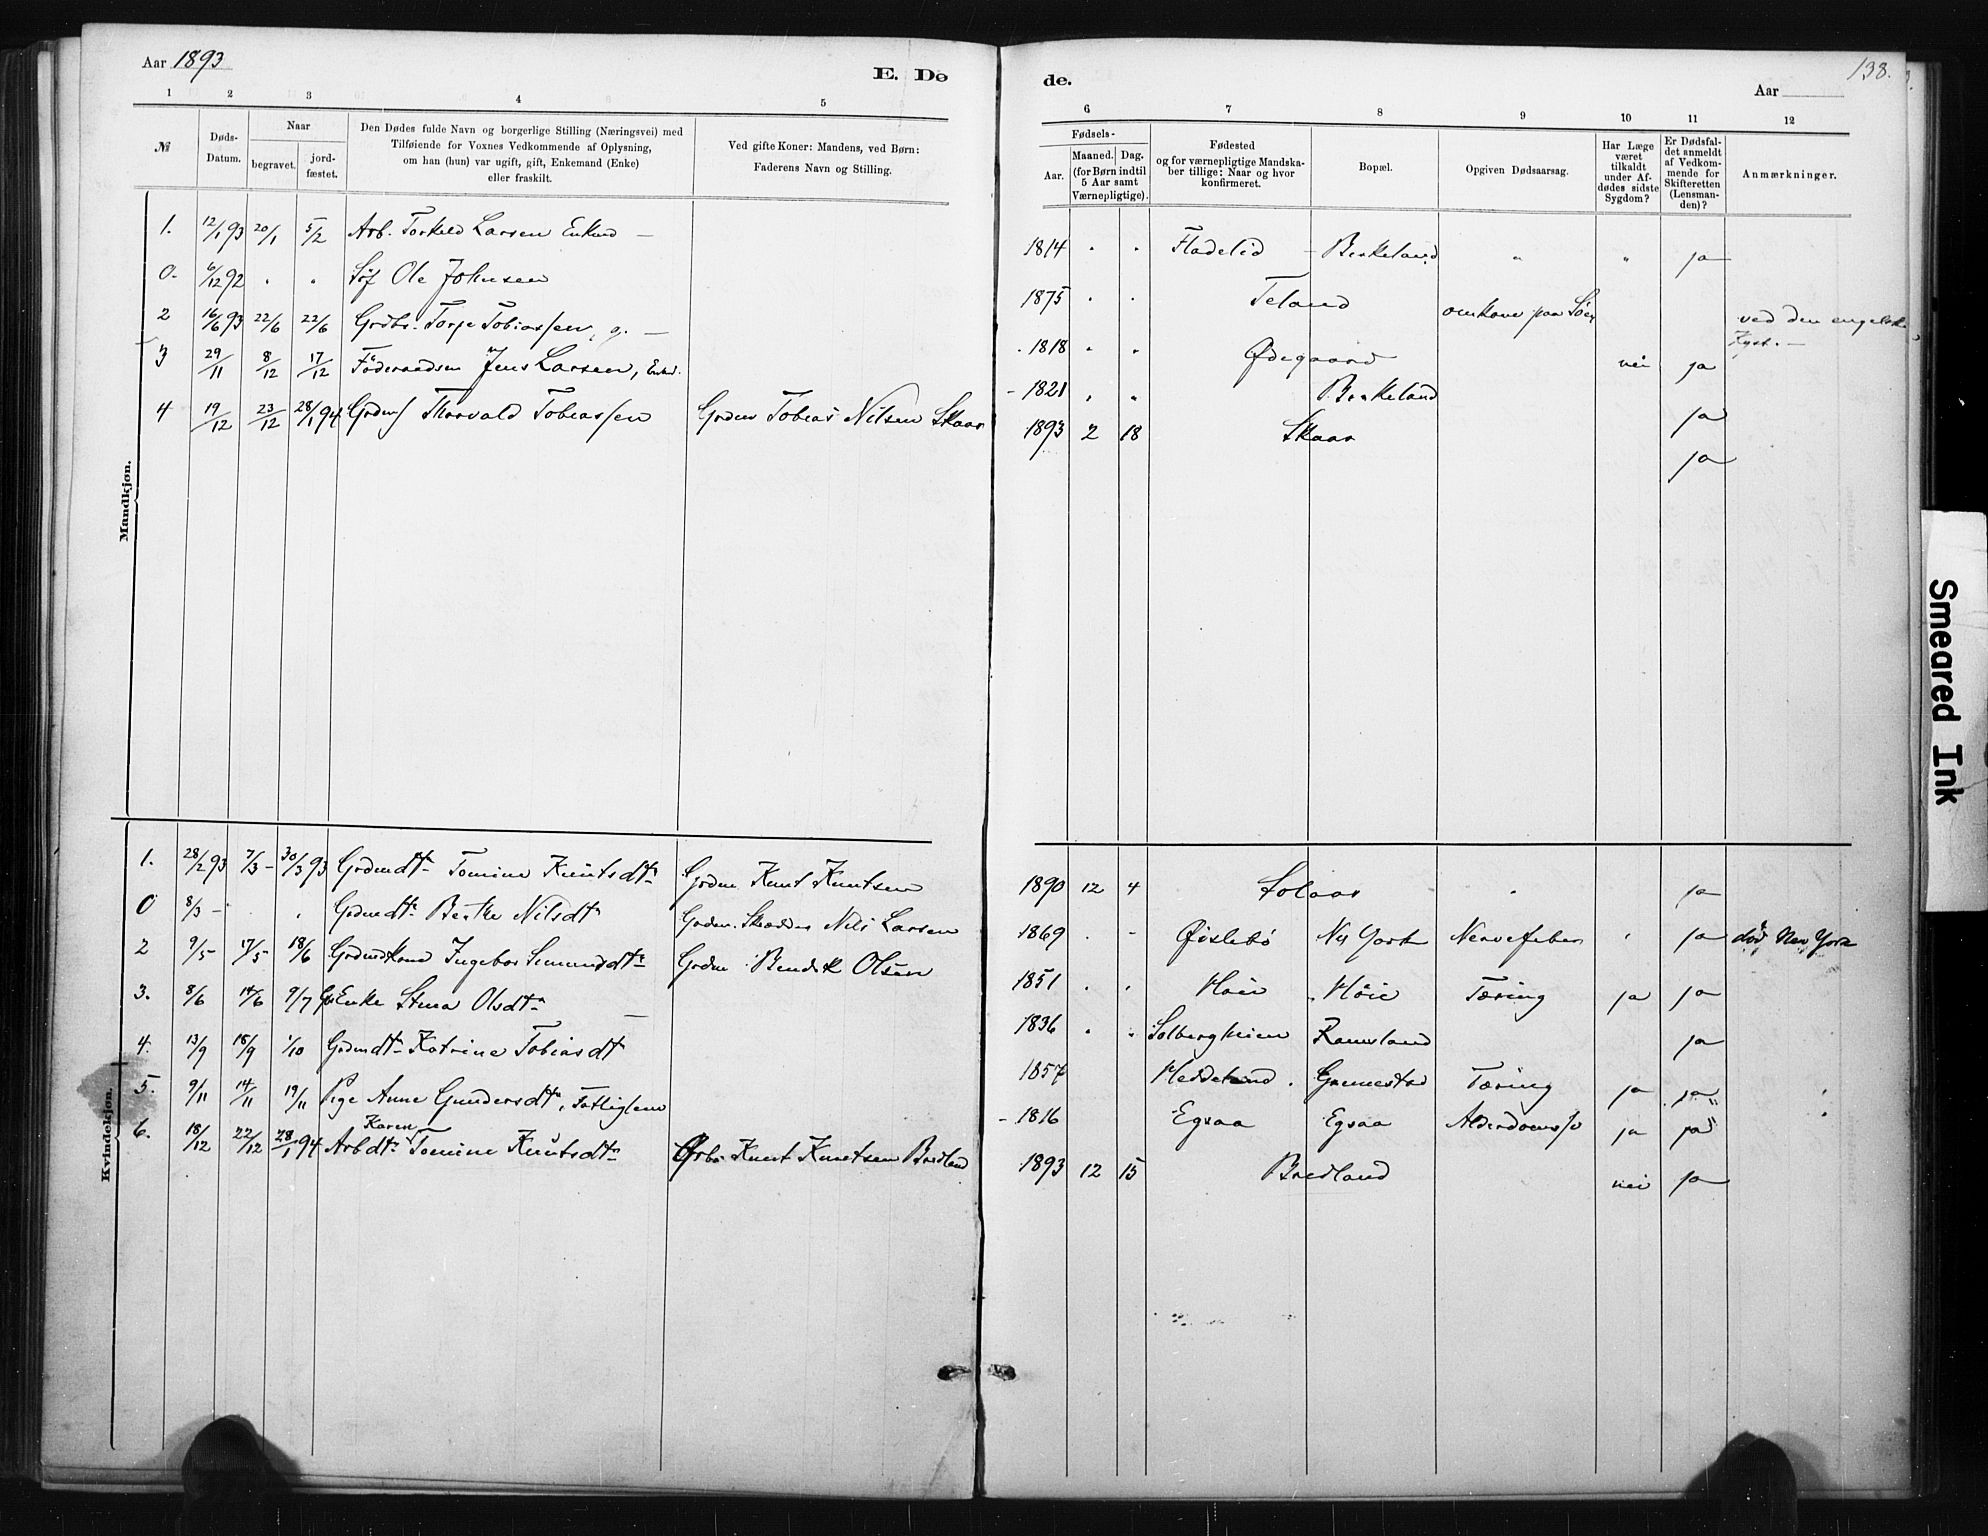 Aar 1893
E. Dø
de.
138.
Aar
1 2 3 4 5
6 7 8 9 10 11 12
№
Døds-
Datum.
Naar
begravet.
jord-
fæstet.
Den Dødes fulde Navn og borgerlige Stilling (Næringsvei) med
Tilføiende for Voxnes Vedkommende af Oplysning,
om han (hun) var ugift, gift, Enkemand (Enke)
eller fraskilt.
Ved gifte Koner: Mandens, ved Børn:
Faderens Navn og Stilling.
Fødsels-
Aar.
Maaned. Dag.
(for Børn indtil
5 Aar samt
Værnepligtige).
Fødested
og for værnepligtige Mandska-
ber tillige: Naar og hvor
konfirmeret.
Bopæl.
Opgiven Dødsaarsag.
Har Læge
været
tilkaldt
under Af-
dødes sidste
Sygdom?
Er Dødsfal-
det anmeldt
af Vedkom-
mende for
Skifteretten
(Lensman-
den)?
Anmærkninger.
Mandkjøn.
1. 12/1 93 20/1 5/2 Arb. Torkild Larsen Enkmd — 1814 " " Fladelid - Birkeland " " ja
0. 6/12 92 " " Søf Ole Johnsen 1875 " " Teland omkom paa Søen ved den engelske Kyst. —
2 16/6 93 22/6 22/6 Grdbr. Torje Tobiassen, g. — 1818 " " Ødegaard nei ja
3 29/11 8/12 17/12 Føderaadsm Jens Larsen, Enkm. - 1821 " " Birkeland ja
4 19/12 23/12 28/1 94 Grdms Thorvald Tobiassen Grdms Tobias Nilsen Skaar 1893 2 18 Skaar ja
Kvindekjøn.
1. 28/2 93 7/3 - 30/3 93 Grdmdtr Tomine Knutsdtr Grdm Knut Knutsen 1890 12 4 " ja
0 8/3 - " Grdmdtr Berthe Nilsdtr Grdm. Skrædder Nils Larsen 1869 " - Øislebø Ny York Nervefeber " ja død New York
2 9/5 17/5 18/6 Grdmdkone Ingebor Simunsdtr Grdm Bendik Olsen 1851 " " Høie Høie Tæring ja ja
3. 8/6 14/6 9/7 Enke Stina Olsdtr — 1836 " " Solbergheien Ramsland ja
4. 13/9 18/9 1/10 Grdmdtr Katrine Tobiasdtr 1857 Heddeland. Tæring ja ja
5. 9/11 14/11 19/11 Pige Anne Gundersdtr, Fattiglem - 1816 Egsaa Egsaa ja ja
6. 18/12 22/12 28/1 94 Arbdtr Karen Tomine Knutsdtr Arb. Knut Knutsen Bredland 1893 12 15 Bredland nei ja
Smeared Ink